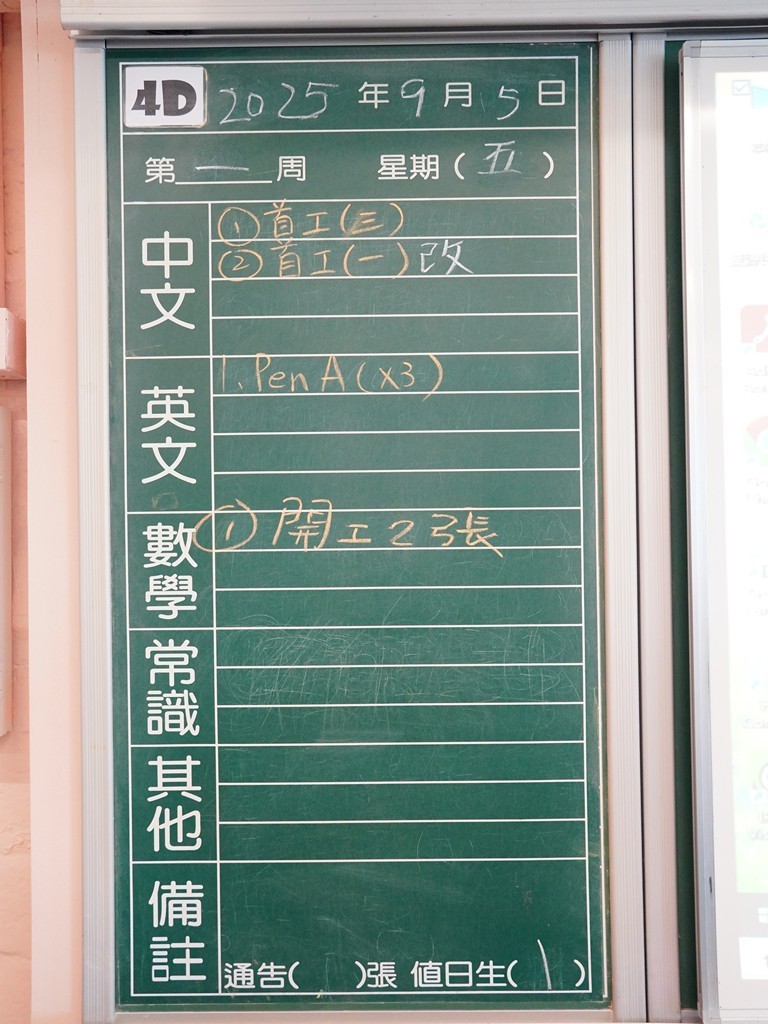 4D 2025 年 9 月 5 日
第 一 周 星期 ( 五 )
中文
① 首工(三)
② 首工(一) 改
英文
1. Pen A (x3)
數學
① 開工 2 張
常識
其他
備註
通告( )張 值日生( 1 )